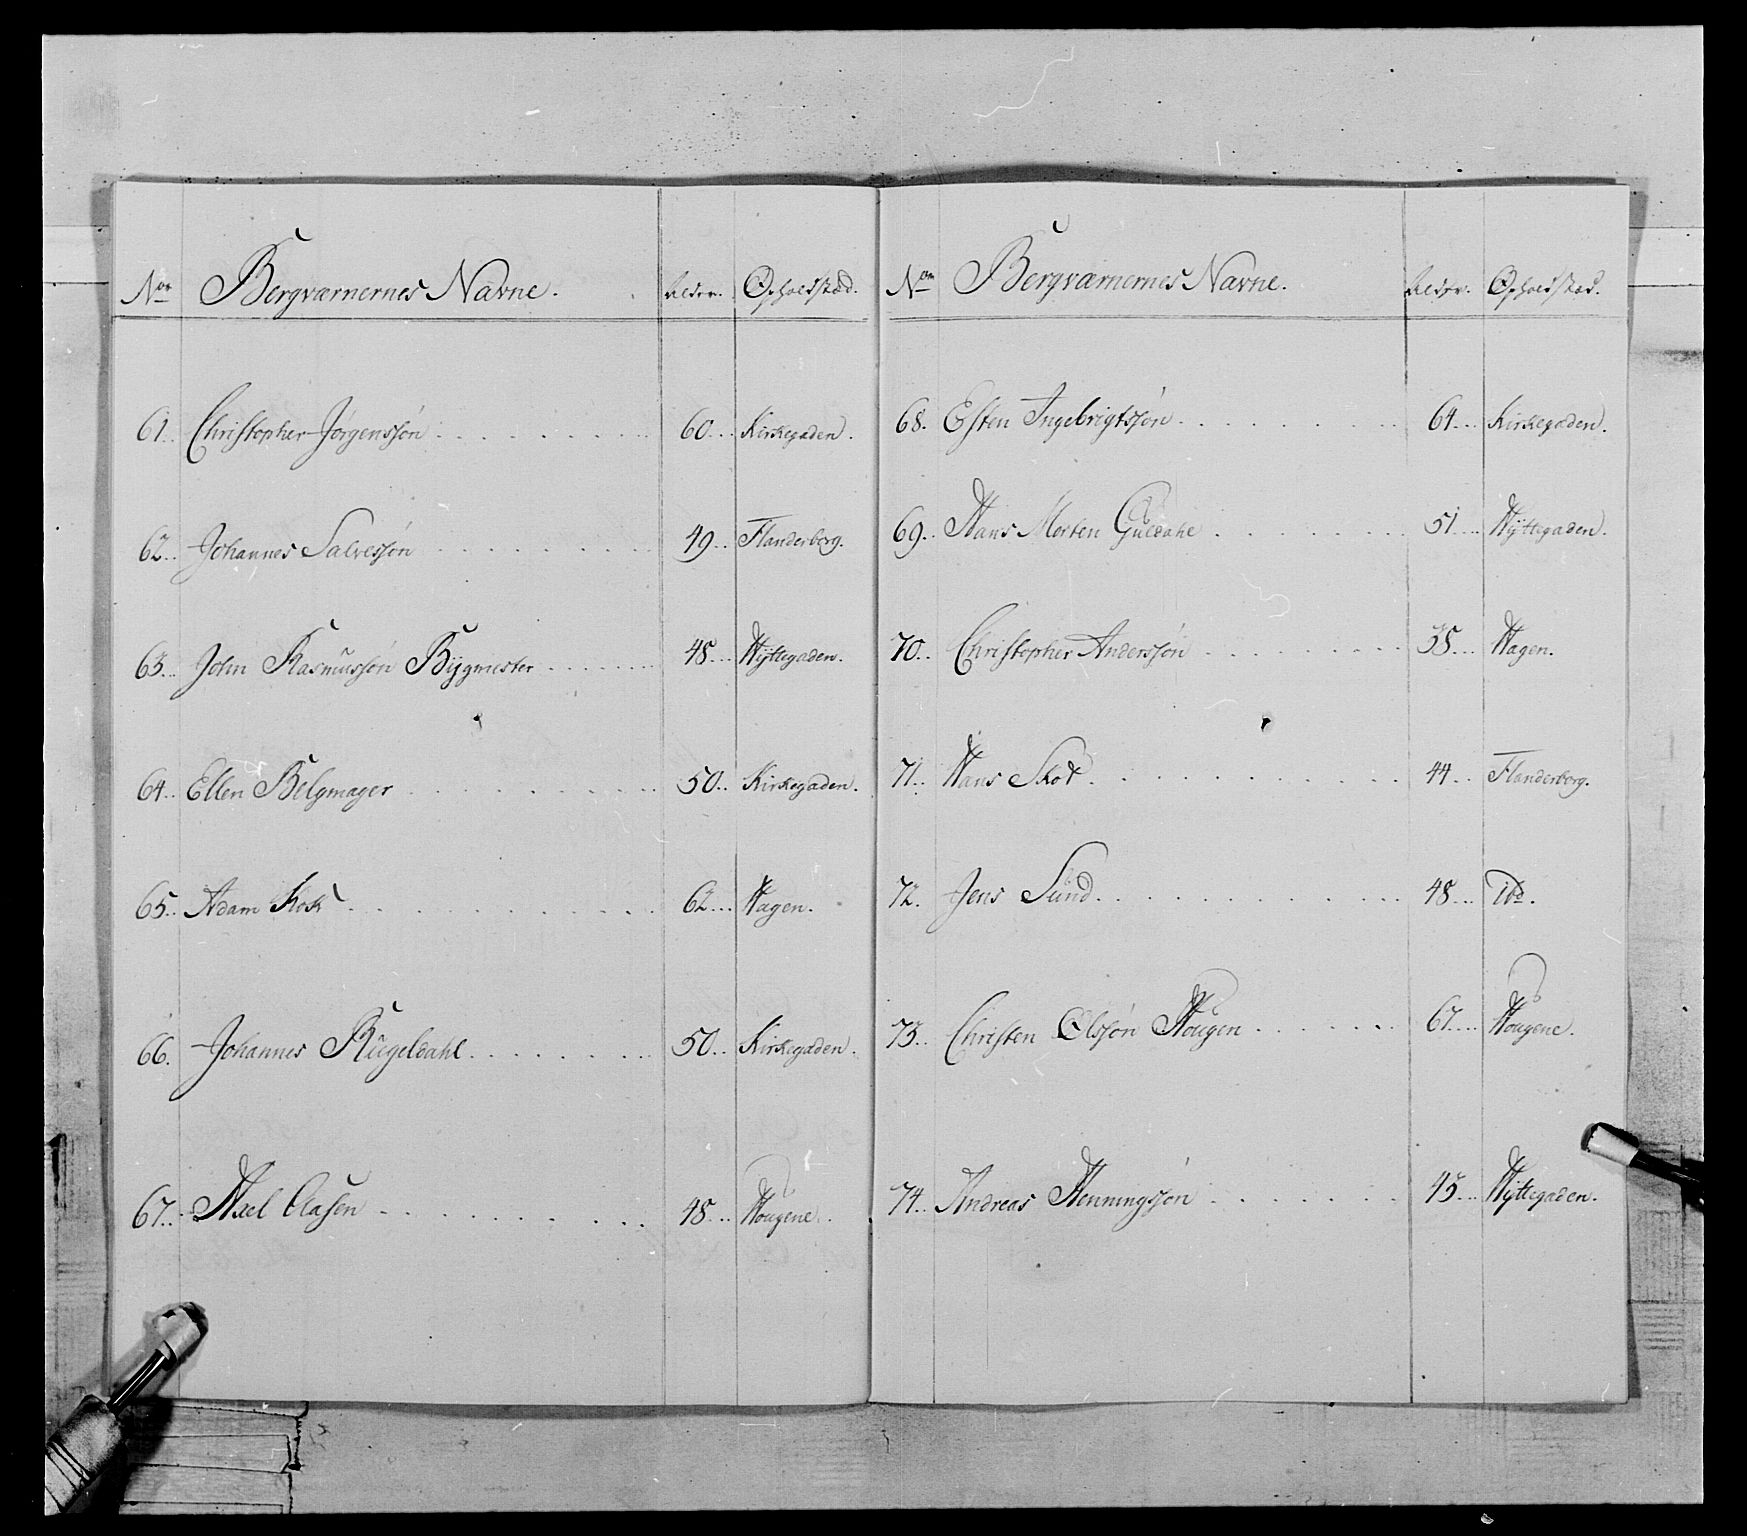 Nor Bergværnernes Navne. Alder. Opholdstæd.
61. Christopher Jørgenssøn 60 Kirkegaden.
62. Johannes Salvessøn 49 Flanderborg.
63. John Rasmussøn Bygmester 48 Hyttegaden.
64. Ellen Belgmager 50 Kirkegaden.
65. Adam Kock 62 Hagen.
66. Johannes Kugeldahl 50 Kirkegaden.
67. Axel Clasen 48 Hougene.
Nor Bergværnernes Navne. Alder. Opholdstæd.
68. Esten Ingebrigtssøn 64 Kirkegaden.
69. Hans Morten Guldahl 51 Hyttegaden.
70. Christopher Anderssøn 38 Hagen.
71. Hans Skot 44 Flanderborg.
72. Jens Sund 48 ibd.
73. Christen Olssøn Hougen 67 Hougene.
74. Andreas Henningssøn 45 Hyttegaden.